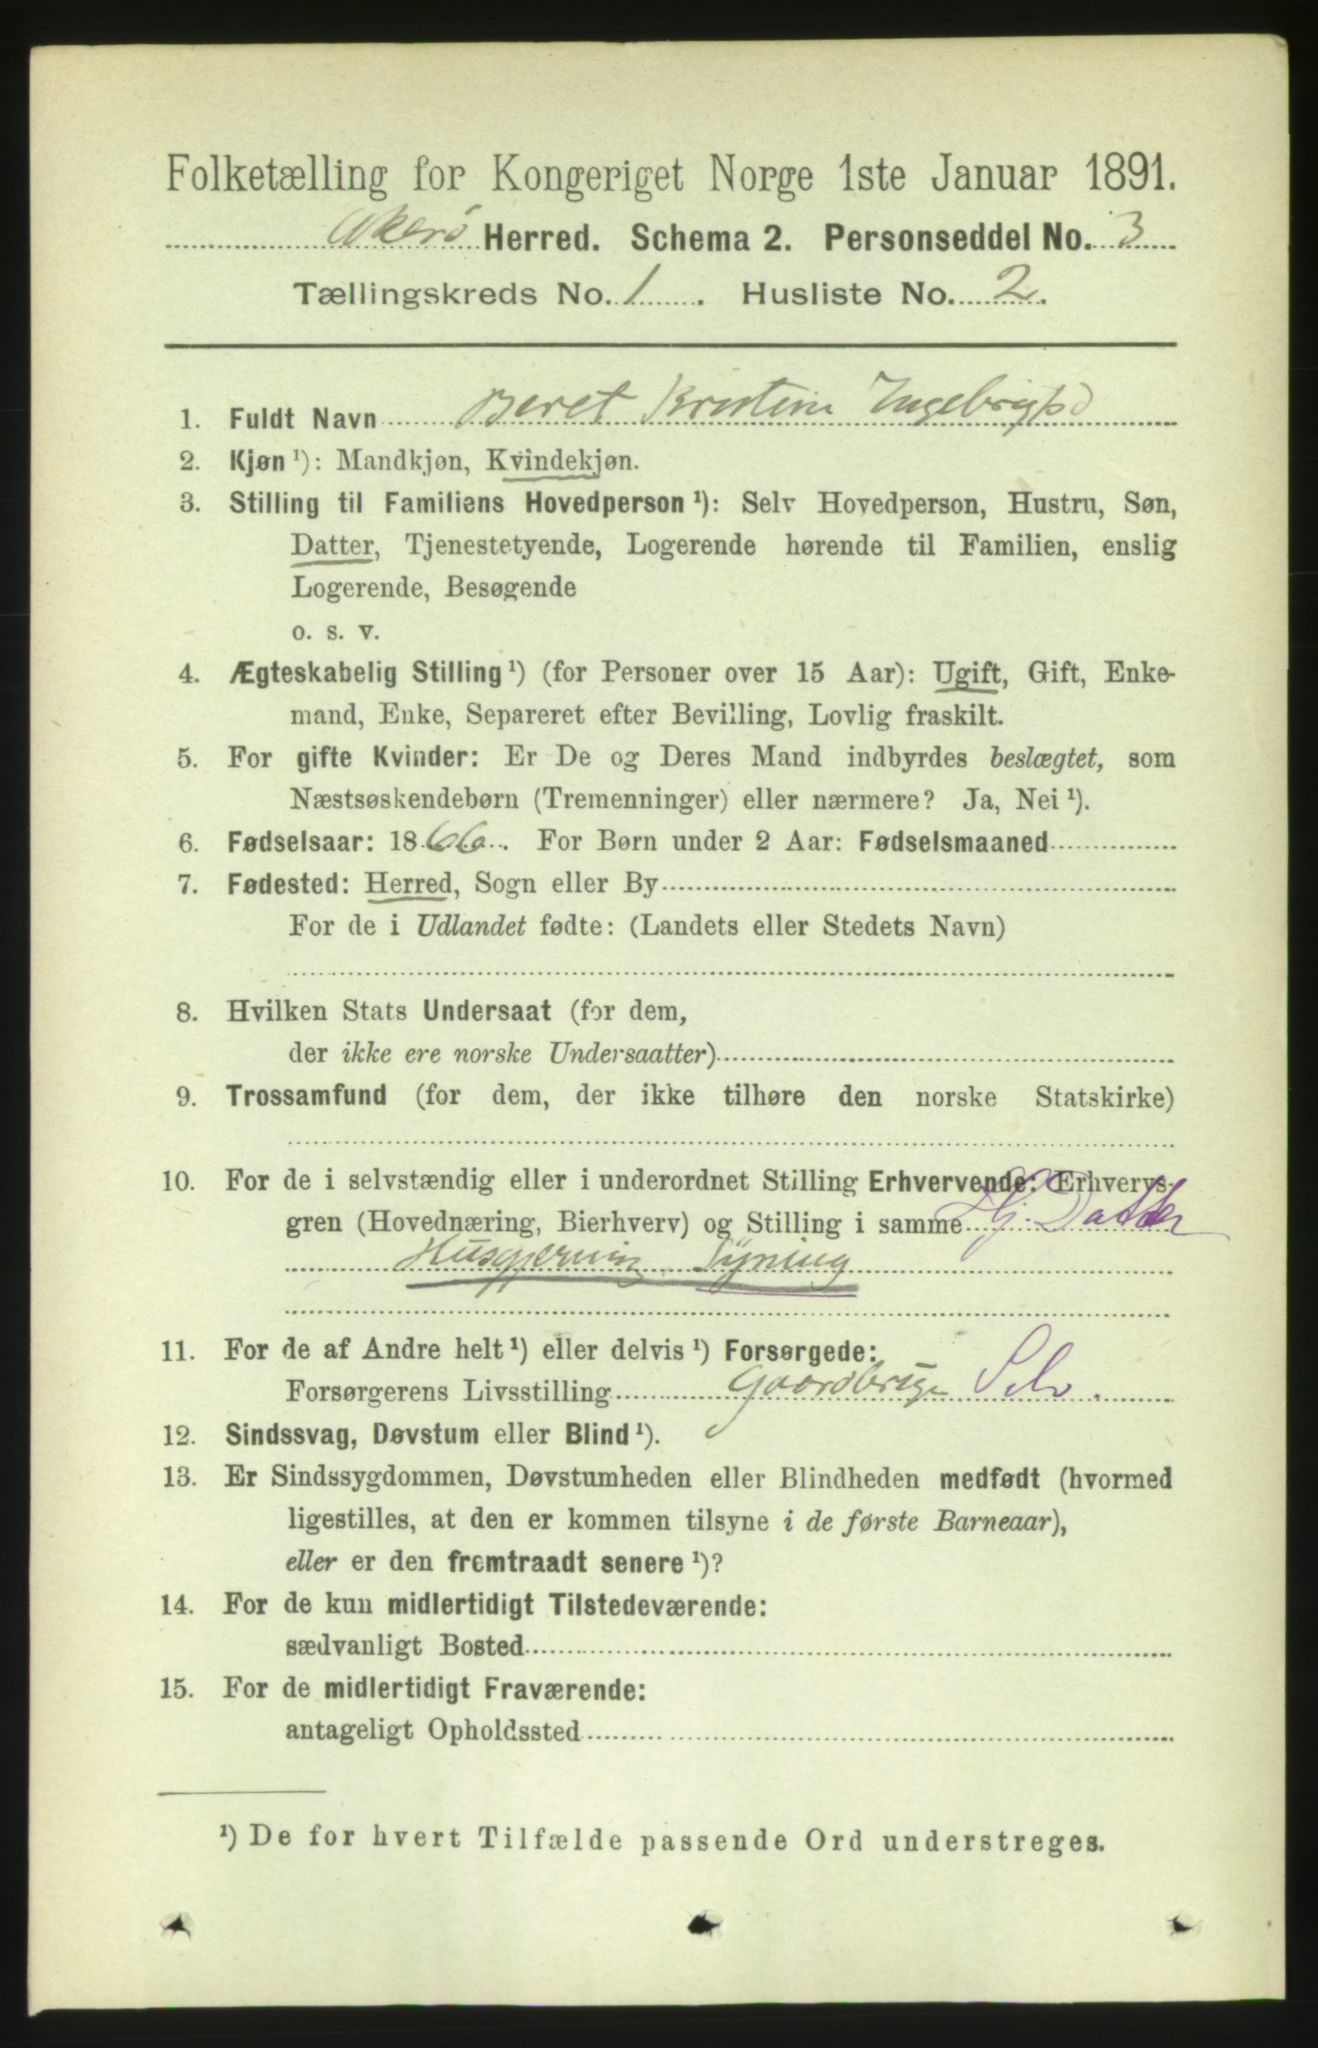 Folketælling for Kongeriget Norge 1ste Januar 1891.
Akerø Herred. Schema 2. Personseddel No. 3
Tællingskreds No. 1. Husliste No. 2.
1. Fuldt Navn Beret Kristine Ingebrigtsd
2. Kjøn ¹): Mandkjøn, Kvindekjøn.
3. Stilling til Familiens Hovedperson ¹): Selv Hovedperson, Hustru, Søn,
Datter, Tjenestetyende, Logerende hørende til Familien, enslig
Logerende, Besøgende
o. s. v.
4. Ægteskabelig Stilling ¹) (for Personer over 15 Aar): Ugift, Gift, Enke-
mand, Enke, Separeret efter Bevilling, Lovlig fraskilt.
5. For gifte Kvinder: Er De og Deres Mand indbyrdes beslægtet, som
Næstsøskendebørn (Tremenninger) eller nærmere? Ja, Nei ¹).
6. Fødselsaar: 1866. For Børn under 2 Aar: Fødselsmaaned
7. Fødested: Herred, Sogn eller By
For de i Udlandet fødte: (Landets eller Stedets Navn)
8. Hvilken Stats Undersaat (for dem,
der ikke ere norske Undersaatter)
9. Trossamfund (for dem, der ikke tilhøre den norske Statskirke)
10. For de i selvstændig eller i underordnet Stilling Erhvervende: Erhvervs-
gren (Hovednæring, Bierhverv) og Stilling i samme Hj. Datter
Husgjerning Syning
11. For de af Andre helt ¹) eller delvis ¹) Forsørgede:
Forsørgerens Livsstilling Gaardbruge Selv.
12. Sindssvag, Døvstum eller Blind ¹).
13. Er Sindssygdommen, Døvstumheden eller Blindheden medfødt (hvormed
ligestilles, at den er kommen tilsyne i de første Barneaar),
eller er den fremtraadt senere ¹)?
14. For de kun midlertidigt Tilstedeværende:
sædvanligt Bosted
15. For de midlertidigt Fraværende:
antageligt Opholdssted
¹) De for hvert Tilfælde passende Ord understreges.